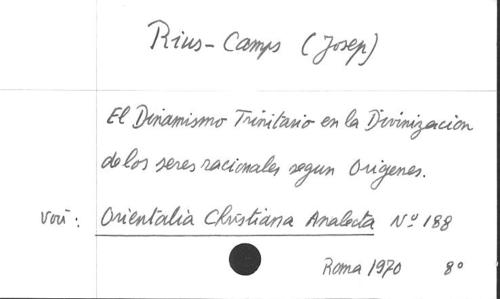 Rius-Camps (Josep)
El Dinamismo Trinitario en la Divinizacion
de los seres racionales segun Origenes.
Voir: Orientalia Christiana Analecta Nº 188
Roma 1970 8º